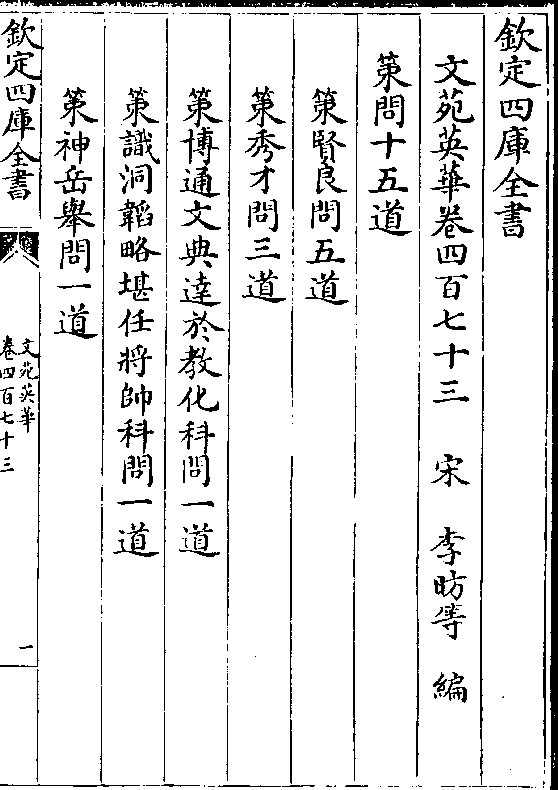 欽定四庫全書
文苑英華卷四百七十三 宋 李昉等 編
策問十五道
策賢良問五道
策秀才問三道
策博通文典達於教化科問一道
策識洞韜略堪任將帥科問一道
策神岳舉問一道
欽定四庫全書
文苑英華
卷四百七十三
一